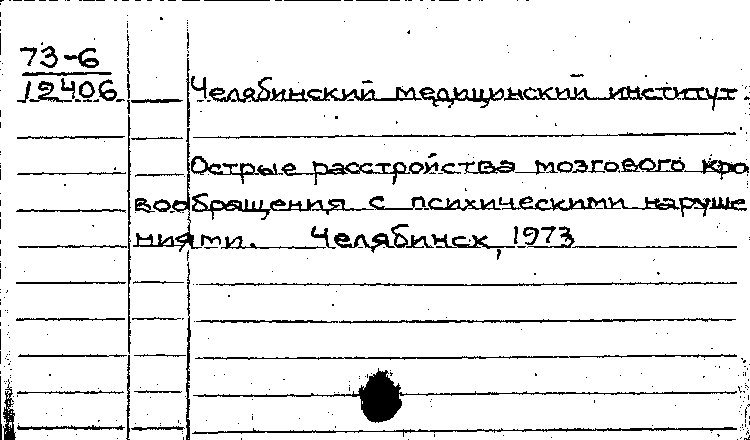 73-6
12406
Челябинский медицинский институт.
Острые расстройства мозгового кро
вообращения с психическими наруше
ниями. Челябинск, 1973